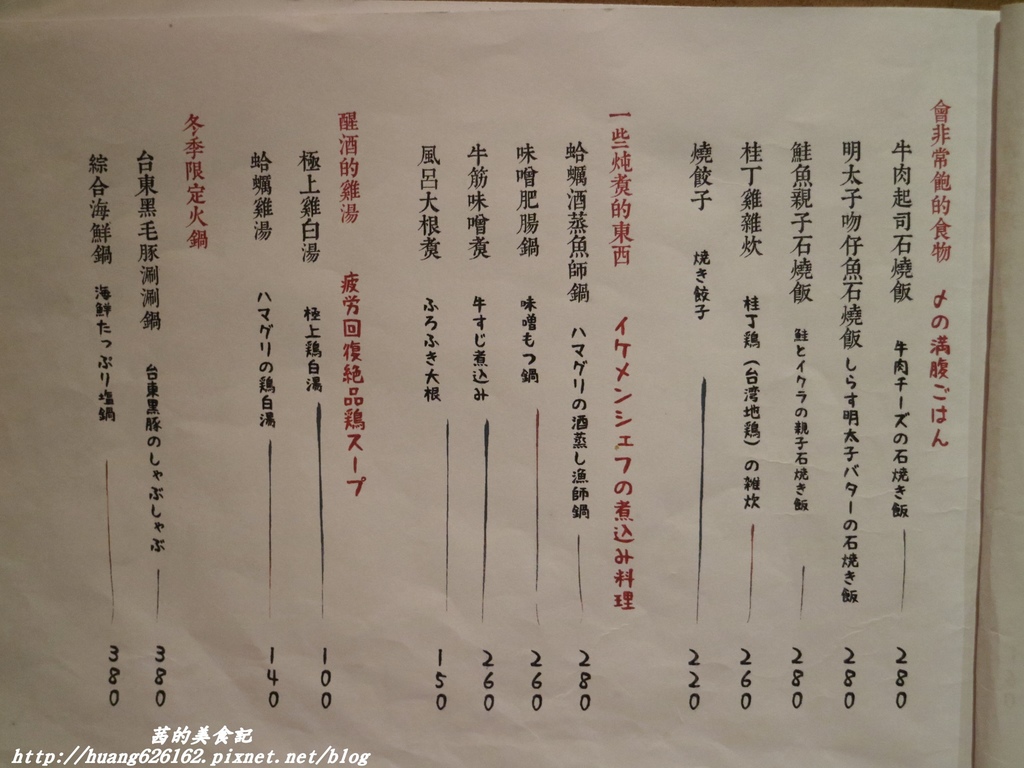 會非常飽的食物 〆の満腹ごはん
牛肉起司石燒飯 牛肉チーズの石焼き飯 280
明太子吻仔魚石燒飯 しらす明太子バターの石焼き飯 280
鮭魚親子石燒飯 鮭とイクラの親子石焼き飯 280
桂丁雞雜炊 桂丁鶏(台湾地鶏)の雑炊 260
燒餃子 焼き餃子 220
一些炖煮的東西 イケメンシェフの煮込み料理
蛤蠣酒蒸魚師鍋 ハマグリの酒蒸し漁師鍋 280
味噌肥腸鍋 味噌もつ鍋 260
牛筋味噌煮 牛すじ煮込み 260
風呂大根煮 ふろふき大根 150
醒酒的雞湯 疲労回復絶品鶏スープ
極上雞白湯 極上鶏白湯 100
蛤蠣雞湯 ハマグリの鶏白湯 140
冬季限定火鍋
台東黑毛豚涮涮鍋 台東黒豚のしゃぶしゃぶ 380
綜合海鮮鍋 海鮮たっぷり塩鍋 380
茜的美食記
http://huang626162.pixnet.net/blog